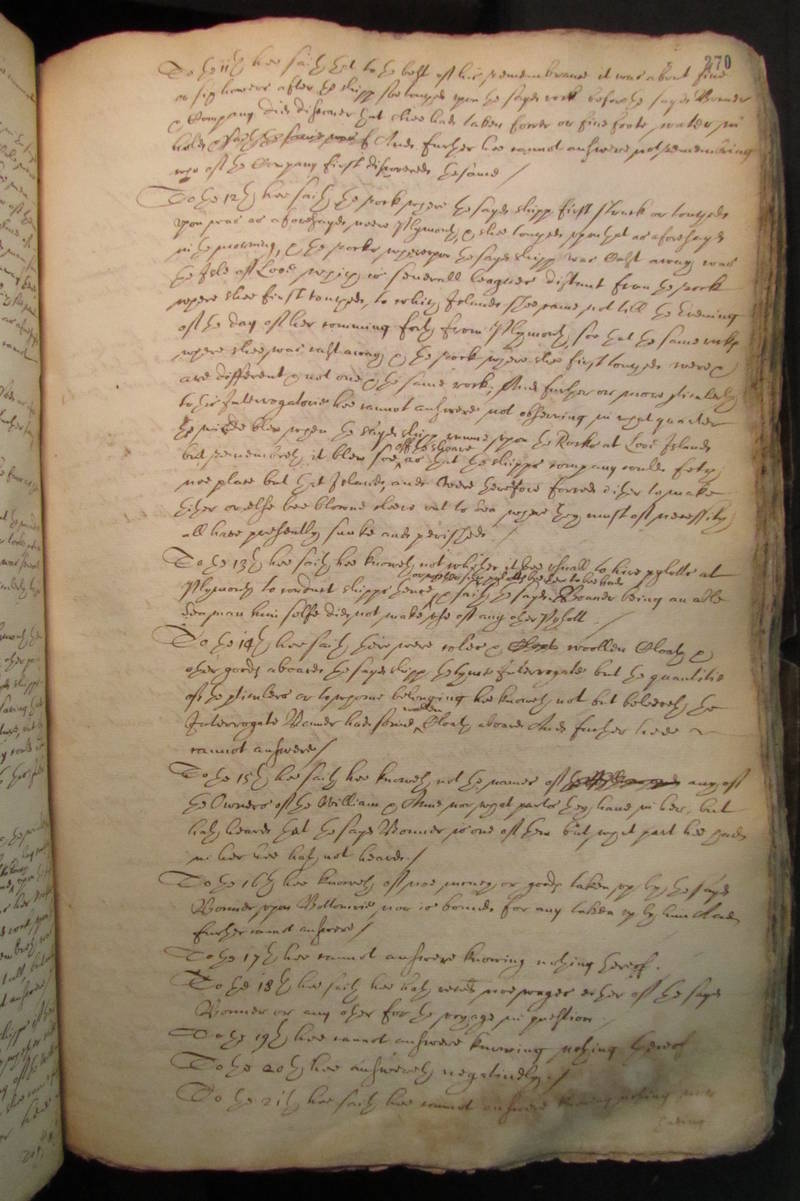 270
To the 11th hee saith that to the best of his remembrance it was about five
or six howers after the shipp soe touched upon the sayd rock before the sayd Bonner
& Company did discover that shee had taken fower or five foote water in
hold And further hee cannot answere not remembring
who of the Company first discovered the same /
To the 12th hee saith the rock where the sayd shipp first struck or touched
upon was as aforesayd neere Plymouth, & shee touched upon that as aforesayd
in the morning, & the rocks whereupon the sayd shipp was Cast away was
the Isle of Looe which is severall leagues distant from the rock
where shee first touched, to which Island shee came not till the Evening
of the day of her comming forth from Plymouth, soe that the same rocks
where shee was cast away & the rock where shee first touched were &
are different & not one & the same rock, And further or more
to this Interrogatorie hee cannot answere not observing in what quarter
the winde blew when the sayd shipp came upon the Rocks at Looe Island
but remembreth it blew soe off the shoare as that the shipps company could fetch
noe place but that Island, and were therefore forced either to make
thither or else bee blowne cleere out to sea where they must of necessity
all have presently sunke and perished /
To the 13th hee saith hee knoweth not whither it bee usuall to hire pylotts at
Plymouth to conduct shipps thence & saith the sayd Bonner being an able
seaman him selfe did not make use of any other Pylott /
To the 14th hee saith there were & woollen Cloath &
other goods aboard the sayd shipp the tyme Interrogate but the quantitie
of the or to whome belonging hee knoweth not but beleeveth the
Interrogate Bonner had some woollen Cloath aboard And further hee
cannot answere /
To the 15th hee saith hee knoweth not the names of any of
the Owners of the William & Anne nor what parts they have in her, but
hath heard that the sayd Bonner is one of them but what part hee had
in her hee hath not heard /
To the 16th hee knoweth of noe money or goods taken up by the sayd
Bonner upon Bottomrie, nor is bound for any taken up by him And
further cannot answere /
To the 17th hee cannot answere knowing nothing thereof.
To the 18th hee saith hee hath noe wages either of the sayd
Bonner or any other for the voyage in question.
To the 19th hee cannot answere knowing nothing thereof
To the 20th hee answereth negatively. /
To the 21th hee saith hee cannot answere knowing nothing nor
having